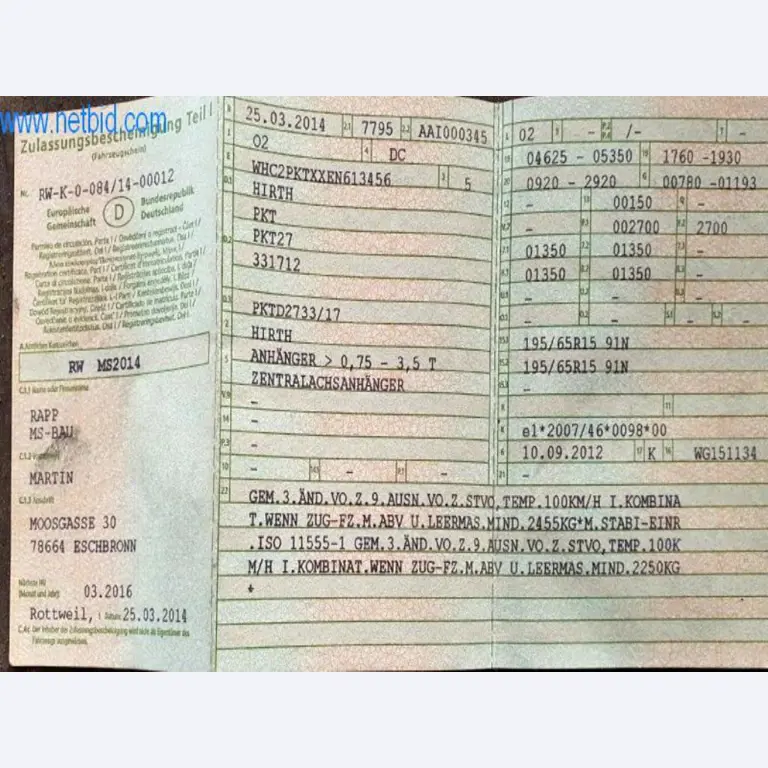 www.netbid.com
Zulassungsbescheinigung Teil I
(Fahrzeugschein)
Nr. RW-K-0-084/14-00012
Europäische Gemeinschaft D Bundesrepublik Deutschland
RW MS2014
C.1.1 Name oder Firmenname
RAPP
MS-BAU
MARTIN
C.1.3 Anschrift
MOOSGASSE 30
78664 ESCHBRONN
03.2016
Rottweil, 25.03.2014
B 25.03.2014 2.1 7795 2.2 AAI000345
J 02 4 DC
E WHC2PKTXXEN613456 3 5
D.1 HIRTH
PKT
D.2 PKT27
331712
D.3 PKTD2733/17
2 HIRTH
5 ANHÄNGER > 0,75 - 3,5 T
ZENTRALACHSANHÄNGER
V.9 -
14 -
P.3 -
10 - - -
L 02 - /- -
18 04625 - 05350 19 1760 -1930
20 0920 - 2920 G 00780 -01193
12 - 00150 -
- 002700 2700
01350 01350 -
01350 01350 -
- - -
- - -
15.1 195/65R15 91N
15.2 195/65R15 91N
15.3 -
R - 11 -
K e1*2007/46*0098*00
6 10.09.2012 17 K 16 WG151134
21 -
22 GEM.3.ÄND.VO.Z.9.AUSN.VO.Z.STVO,TEMP.100KM/H I.KOMBINA
T.WENN ZUG-FZ.M.ABV U.LEERMAS.MIND.2455KG*M.STABI-EINR
.ISO 11555-1 GEM.3.ÄND.VO.Z.9.AUSN.VO.Z.STVO,TEMP.100K
M/H I.KOMBINAT.WENN ZUG-FZ.M.ABV U.LEERMAS.MIND.2250KG
+